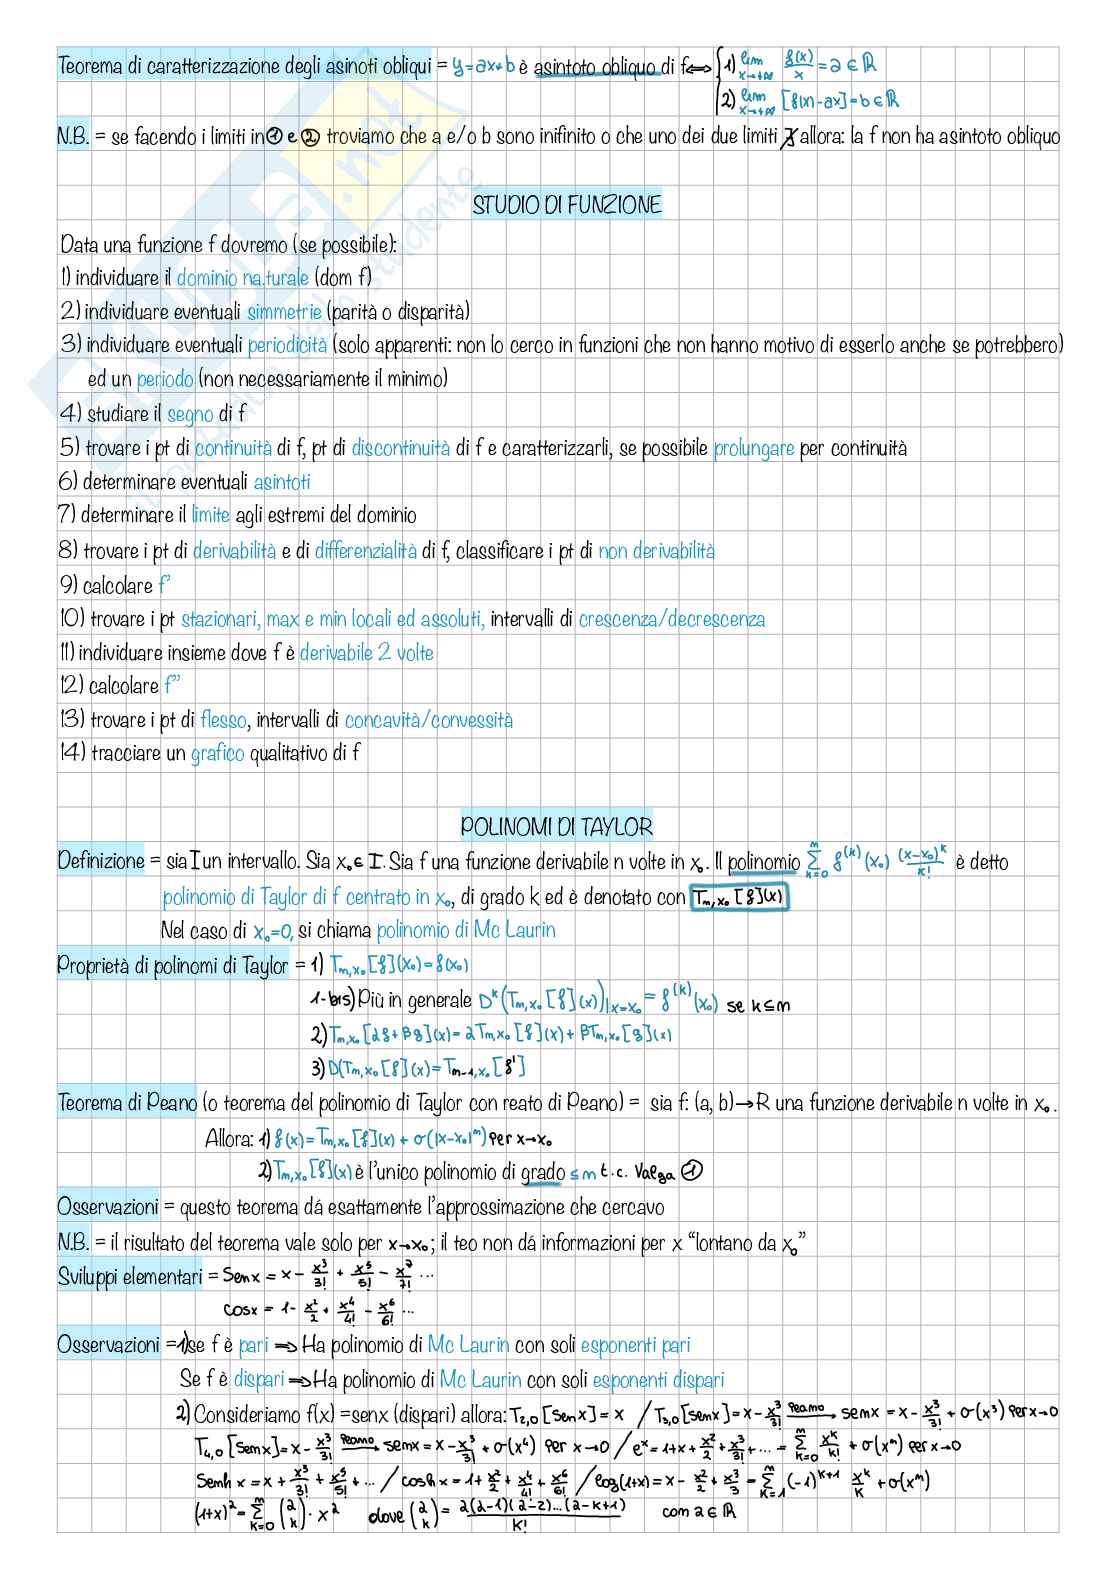 Teorema di caratterizzazione degli asinoti obliqui = y=ax+b è asintoto obliquo di f ⟺ { 1) lim x→+∞ f(x)/x = a ∈ ℝ
2) lim x→+∞ [f(x)-ax]=b∈ℝ
N.B. = se facendo i limiti in ① e ② troviamo che a e/o b sono inifinito o che uno dei due limiti ∄ allora: la f non ha asintoto obliquo
STUDIO DI FUNZIONE
Data una funzione f dovremo (se possibile):
1) individuare il dominio na.turale (dom f)
2) individuare eventuali simmetrie (parità o disparità)
3) individuare eventuali periodicità (solo apparenti: non lo cerco in funzioni che non hanno motivo di esserlo anche se potrebbero)
ed un periodo (non necessariamente il minimo)
4) studiare il segno di f
5) trovare i pt di continuità di f, pt di discontinuità di f e caratterizzarli, se possibile prolungare per continuità
6) determinare eventuali asintoti
7) determinare il limite agli estremi del dominio
8) trovare i pt di derivabilità e di differenzialità di f, classificare i pt di non derivabilità
9) calcolare f'
10) trovare i pt stazionari, max e min locali ed assoluti, intervalli di crescenza/decrescenza
11) individuare insieme dove f è derivabile 2 volte
12) calcolare f''
13) trovare i pt di flesso, intervalli di concavità/convessità
14) tracciare un grafico qualitativo di f
POLINOMI DI TAYLOR
Definizione = sia I un intervallo. Sia x₀∈ I. Sia f una funzione derivabile n volte in x₀. Il polinomio Σ_{k=0}^{n} f^(k)(x₀) (x-x₀)^k/k! è detto
polinomio di Taylor di f centrato in x₀, di grado k ed è denotato con T_{n,x₀}[f](x)
Nel caso di x₀=0, si chiama polinomio di Mc Laurin
Proprietà di polinomi di Taylor = 1) T_{n,x₀}[f](x₀)=f(x₀)
1-bis) Più in generale D^k(T_{n,x₀}[f](x))|x=x₀ = f^(k)(x₀) se k≤n
2) T_{n,x₀}[αf+βg](x)=αT_{n,x₀}[f](x)+βT_{n,x₀}[g](x)
3) D(T_{n,x₀}[f](x)=T_{n-1,x₀}[f']
Teorema di Peano (o teorema del polinomio di Taylor con reato di Peano) = sia f: (a, b)→R una funzione derivabile n volte in x₀.
Allora: 1) f(x)=T_{n,x₀}[f](x)+o(|x-x₀|^n) per x→x₀
2) T_{n,x₀}[f](x) è l'unico polinomio di grado ≤n t.c. valga ①
Osservazioni = questo teorema dá esattamente l'approssimazione che cercavo
N.B. = il risultato del teorema vale solo per x→x₀; il teo non dá informazioni per x "lontano da x₀"
Sviluppi elementari = senx = x - x³/3! + x⁵/5! - x⁷/7! ...
cosx = 1- x²/2 + x⁴/4! - x⁶/6! ...
Osservazioni =1)se f è pari ⇒ Ha polinomio di Mc Laurin con soli esponenti pari
Se f è dispari ⇒ Ha polinomio di Mc Laurin con soli esponenti dispari
2) Consideriamo f(x) =senx (dispari) allora: T_{2,0}[senx]= x / T_{3,0}[senx]=x-x³/3! Peano→ senx = x - x³/3! + o(x³) per x→0
T_{4,0}[senx]=x-x³/3! Peano→ senx=x-x³/3! + o(x⁴) per x→0 / e^x=1+x+x²/2+x³/3!+...= Σ_{k=0}^{n} x^k/k! + o(x^n) per x→0
senh x = x + x³/3! + x⁵/5! + ... / cosh x = 1+ x²/2 + x⁴/4! + x⁶/6! / log(1+x)= x - x²/2 + x³/3 = Σ_{k=1}^{n} (-1)^{k+1} x^k/k +o(x^n)
(1+x)^2= Σ_{k=0}^{n} (a k) · x^2 dove (a k) = a(a-1)(a-2)...(a-k+1)/k! con a∈ℝ